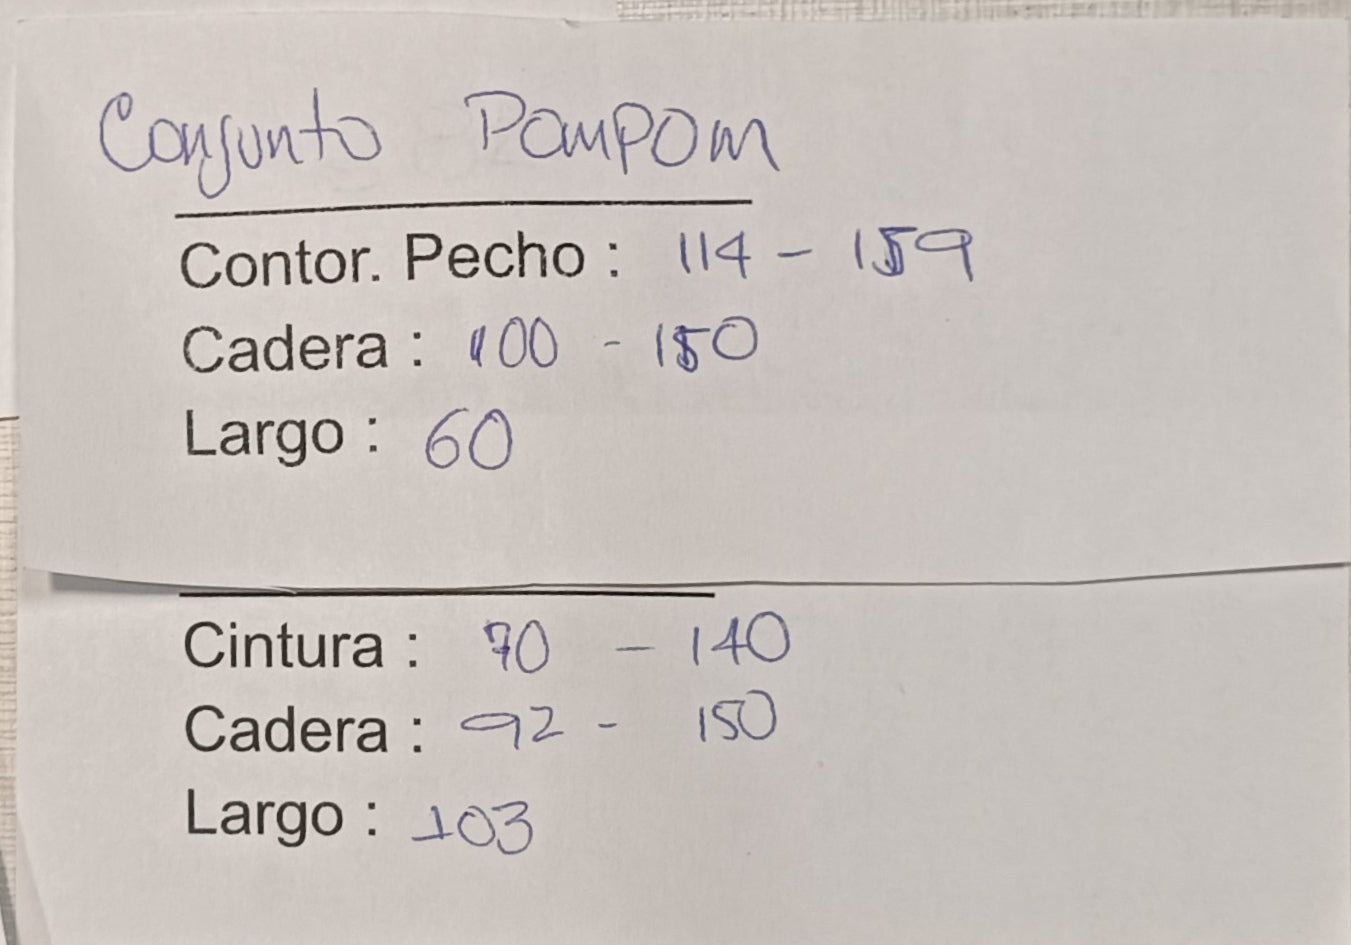 Conjunto Pompom
Contor. Pecho : 114 - 159
Cadera : 100 - 150
Largo : 60
Cintura : 70 - 140
Cadera : 92 - 150
Largo : 103